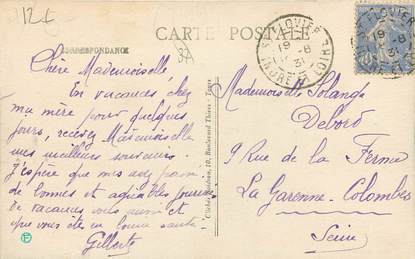 12€
CARTE POSTALE
CORRESPONDANCE
Chère Mademoiselle,
En vacances chez
ma mère pour quelques
jours, recevez Mademoiselle
mes meilleurs souvenirs.
J'espère que mes avez passé
de bonnes et agréables journées
de vacances vous aussi et
que vous êtes en bonne santé.
Gilberte
10, Boulevard Thiers - Tours
ST FLOVIER
19 -8
31
INDRE ET LOIRE
FLOVIER
19 -8
31
Mademoiselle Solange
Debord
9 Rue de la Ferme
La Garenne-Colombes
Seine